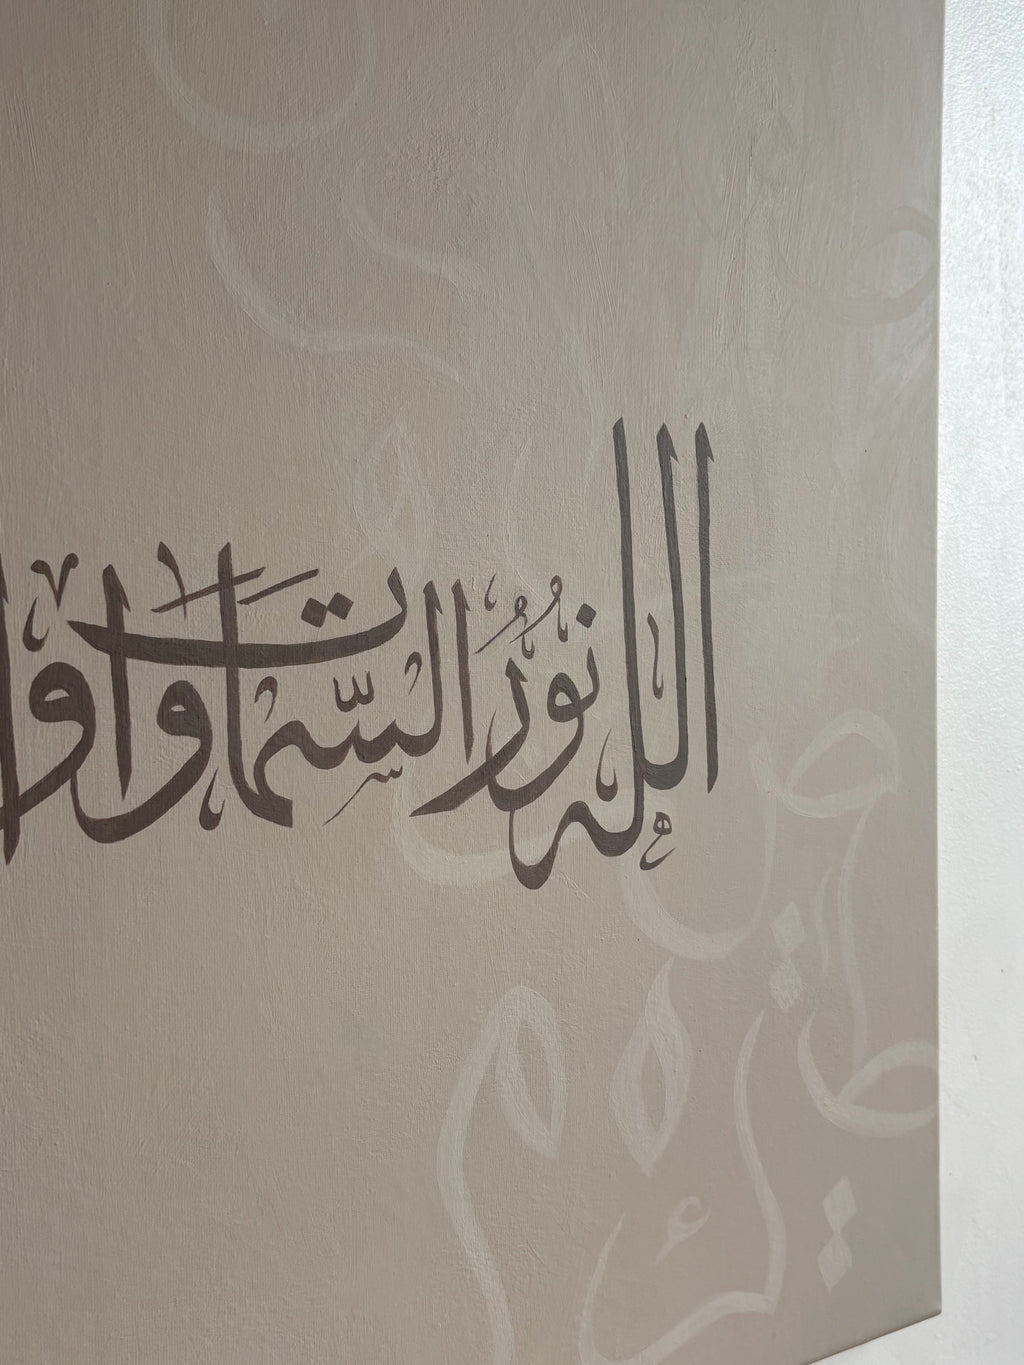 الله نُورُ السَّمَاوَات وا